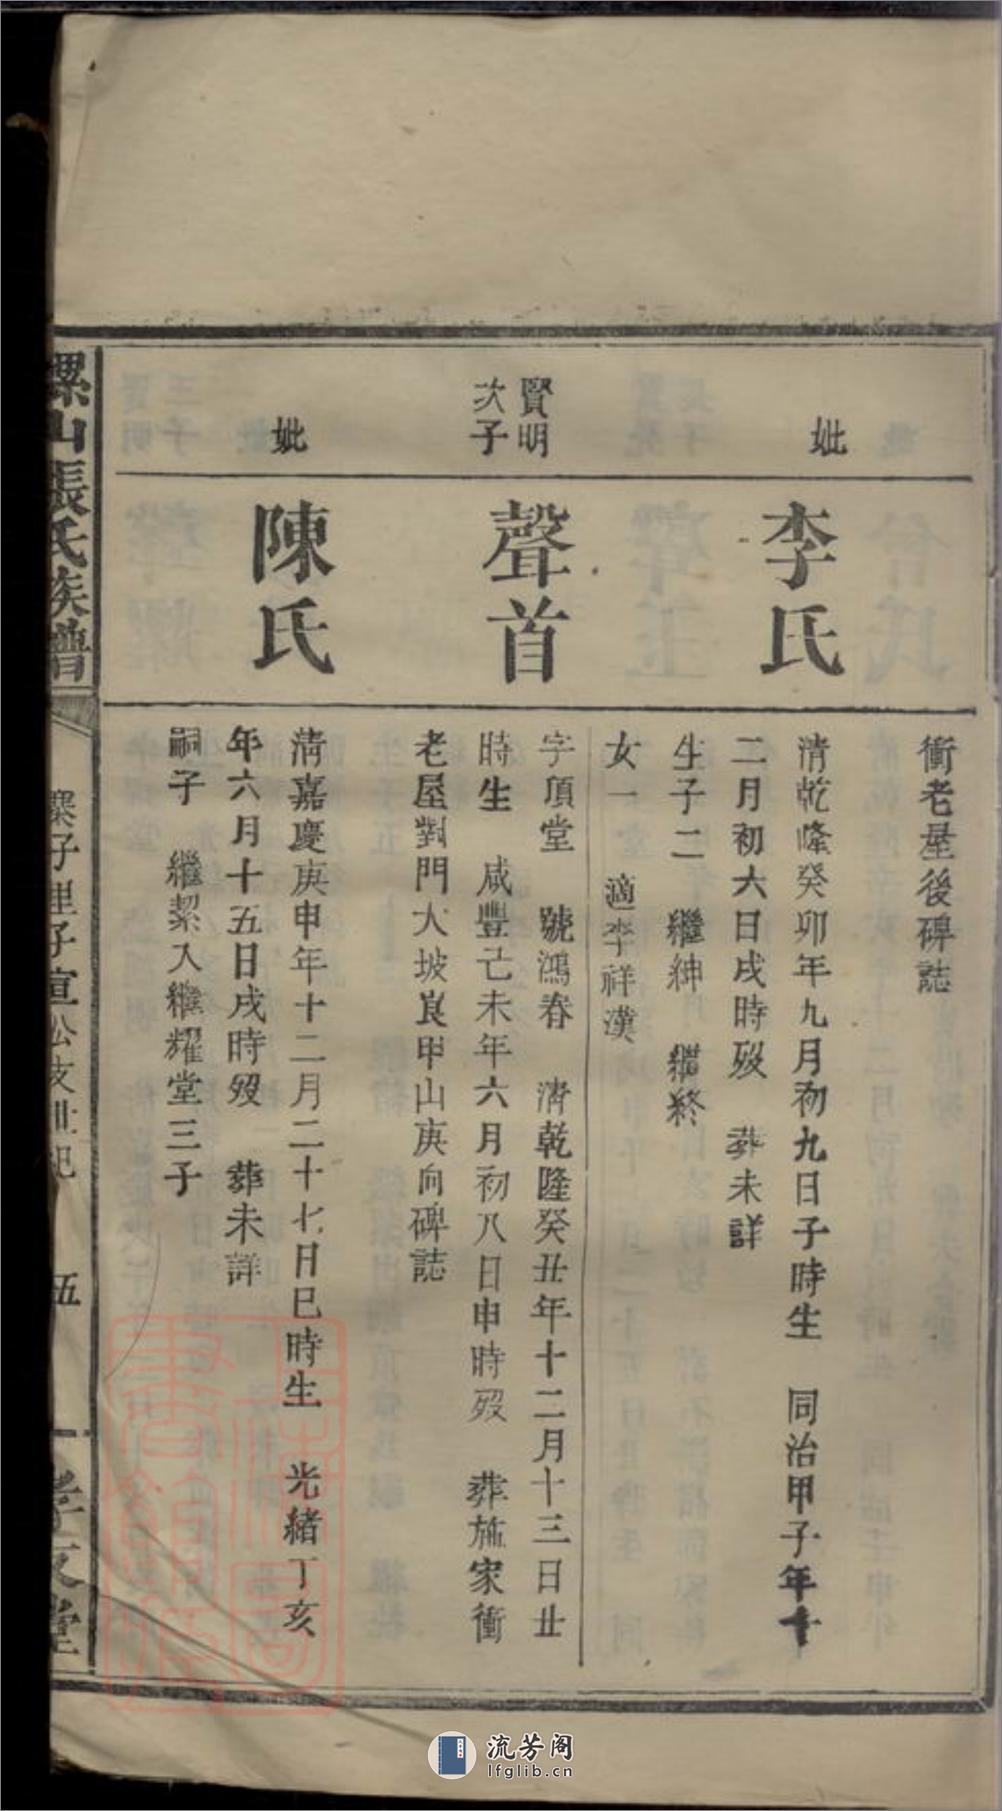 衝老屋後碑誌
妣
李氏
清乾隆癸卯年九月初九日子時生　同治甲子年十
二月初六日戌時歿　葬未詳
生子二　繼紳　繼終
女一　適李祥漢
賢明
次子
聲首
字頂堂　號鴻春　清乾隆癸丑年十二月十三日丑
時生　咸豐己未年六月初八日申時歿　葬施家衝
老屋對門大坡艮甲山庚向碑誌
妣
陳氏
清嘉慶庚申年十二月二十七月巳時生　光緒丁亥
年六月十五日戌時歿　葬未詳
嗣子　繼絜入繼耀堂三子
螺山張氏族譜
子里子宣公支世紀
伍
孝友堂
流芳阁
lfglib.cn